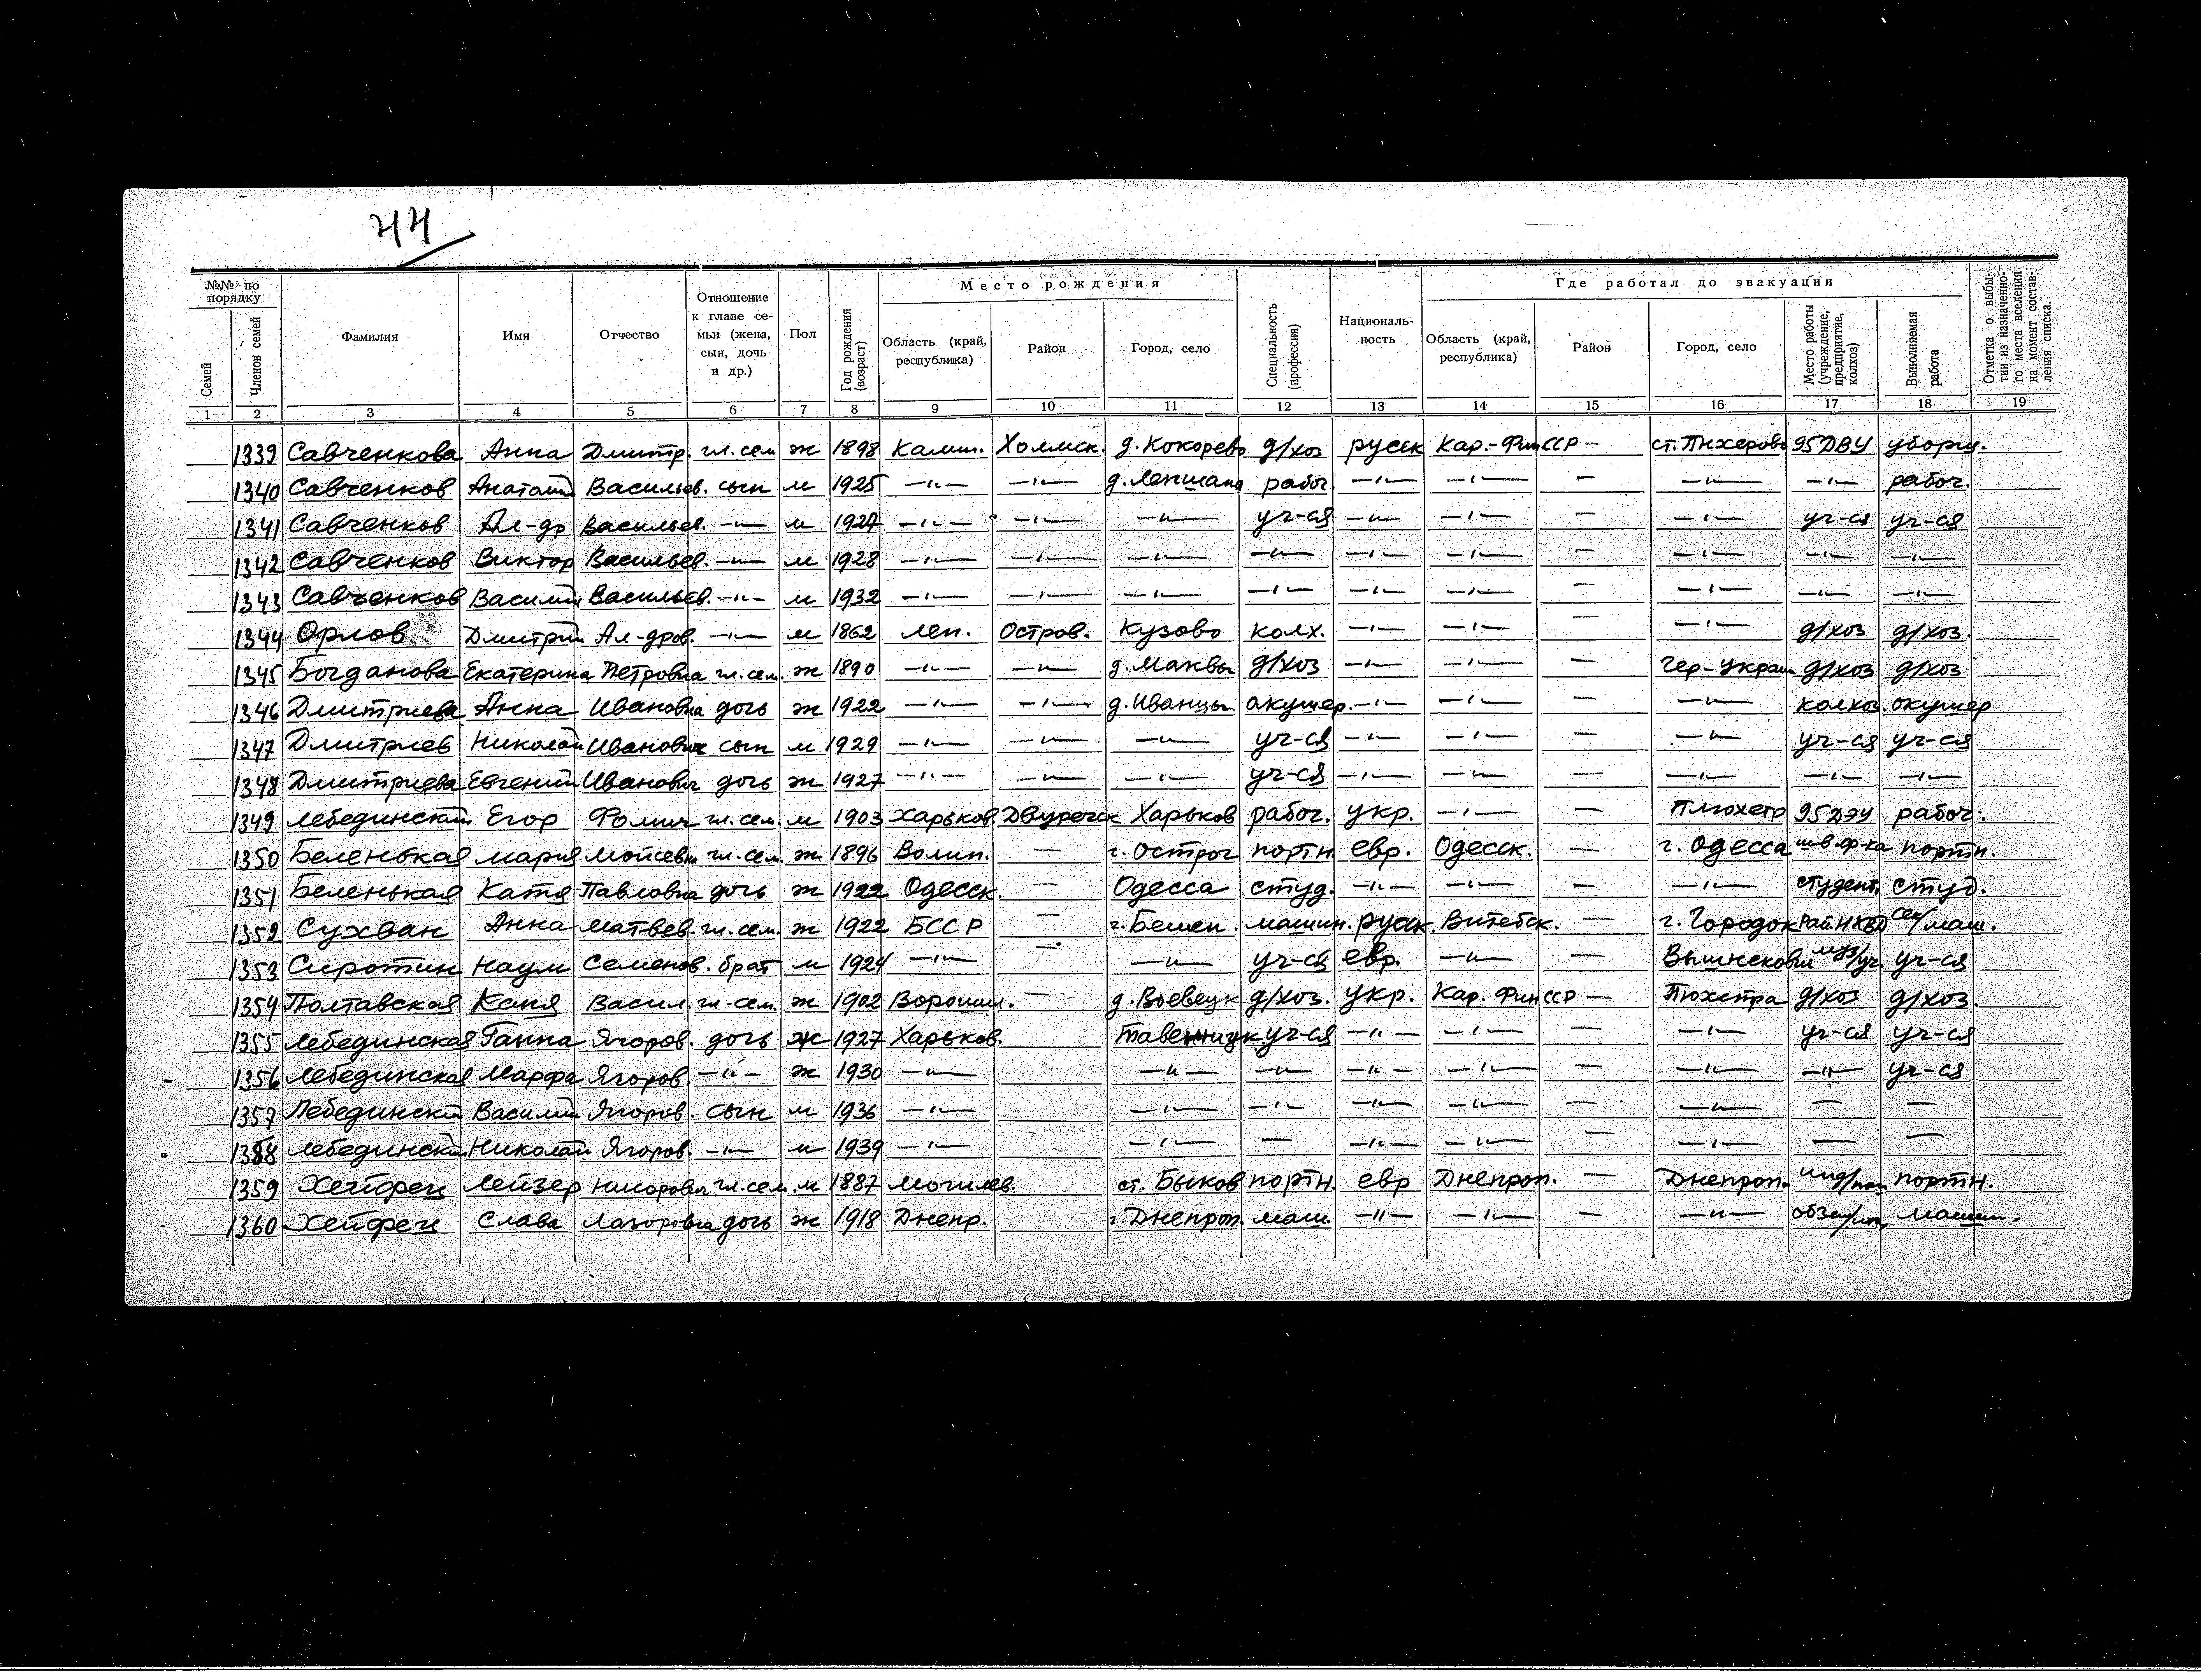 44
№№ по порядку Фамилия Имя Отчество Отношение к главе семьи (жена, сын, дочь и др.) Пол Год рождения (возраст) Место рождения Специальность (профессия) Националь-ность Где работал до эвакуации Отметка о выбы-тии из назначенно-го места вселения на момент состав-ления списка.
Семей Членов семей Область (край, республика) Район Город, село Область (край, республика) Район Город, село Место работы (учреждение, предприятие, колхоз) Выполняемая работа
1 2 3 4 5 6 7 8 9 10 11 12 13 14 15 16 17 18 19
1339 Савченкова Анна Дмитр. гл. сем ж 1898 Калин. Холмск. д. Кокорево д/хоз русск Кар.-Фин ССР — ст. 95 ДВУ уборщ.
1340 Савченков Анатолий Васильев. сын м 1925 —"— —"— д. рабоч. —"— —"— — —"— —"— рабоч.
1341 Савченков Ал-др Васильев. —"— м 1927 —"— —"— —"— уч-ся —"— —"— — —"— уч-ся уч-ся
1342 Савченков Виктор Васильев. —"— м 1928 —"— —"— —"— —"— —"— —"— — —"— —"— —"—
1343 Савченков Василий Васильев. —"— м 1932 —"— —"— —"— —"— —"— —"— — —"— —"— —"—
1344 Орлов Дмитрий Ал-дров. —"— м 1862 Лен. Остров. Кузово колх. —"— —"— — —"— д/хоз д/хоз.
1345 Богданова Екатерина Петровна гл. сем. ж 1890 —"— —"— д. Маквы д/хоз —"— —"— — д/хоз д/хоз
1346 Дмитриева Анна Ивановна дочь ж 1922 —"— —"— д. Иванцы акушер. —"— —"— — —"— колхоз. акушер
1347 Дмитриев Николай Иванович сын м 1929 —"— —"— —"— уч-ся —"— —"— — —"— уч-ся уч-ся
1348 Дмитриева Евгений Иванович дочь ж 1927 —"— —"— —"— уч-ся —"— —"— — —"— —"— —"—
1349 Лебединский Егор Фомич гл. сем. м 1903 Харьков Двуречск Харьков рабоч. укр. —"— — Плюхетр 95 ДЭУ рабоч.
1350 Беленькая Мария Мойсевн гл. сем. ж 1896 Волин. — г. Острог портн. евр. Одесск. — г. Одесса шв. ф-ка портн.
1351 Беленькая Катя Павловна дочь ж 1922 Одесск. — Одесса студ. —"— —"— — —"— студент. студ.
1352 Сухван Анна Матвев. гл. сем. ж 1922 БССР — г. Бешен. машин. русск. Витебск. — г. Городок Рай. НКВД сек/маш.
1353 Сиротин Наум Семенов. брат м 1924 —"— — —"— уч-ся евр. —"— — уч-ся
1354 Полтавская Ксня Васил. гл. сем. ж 1902 Ворошил. — д. Воевецк д/хоз. укр. Кар. Фин ССР — Пюхетра д/хоз д/хоз.
1355 Лебединская Ганна Ягоров. дочь ж 1927 Харьков. уч-ся —"— —"— — —"— уч-ся уч-ся
1356 Лебединская Марфа Ягоров. —"— ж 1930 —"— —"— —"— —"— —"— — —"— —"— уч-ся
1357 Лебединский Василий Ягоров. сын м 1936 —"— —"— —"— —"— —"— — —"— — —
1358 Лебединский Николай Ягоров. —"— м 1939 —"— —"— — —"— —"— — —"— — —
1359 Хейфец Лейзер гл. сем. м 1887 Могилев. ст. Быков портн. евр Днепроп. — Днепроп. портн.
1360 Хейфец Слава Лазоровна дочь ж 1918 Днепр. г. Днепроп. маш. —"— —"— — —"— машин.